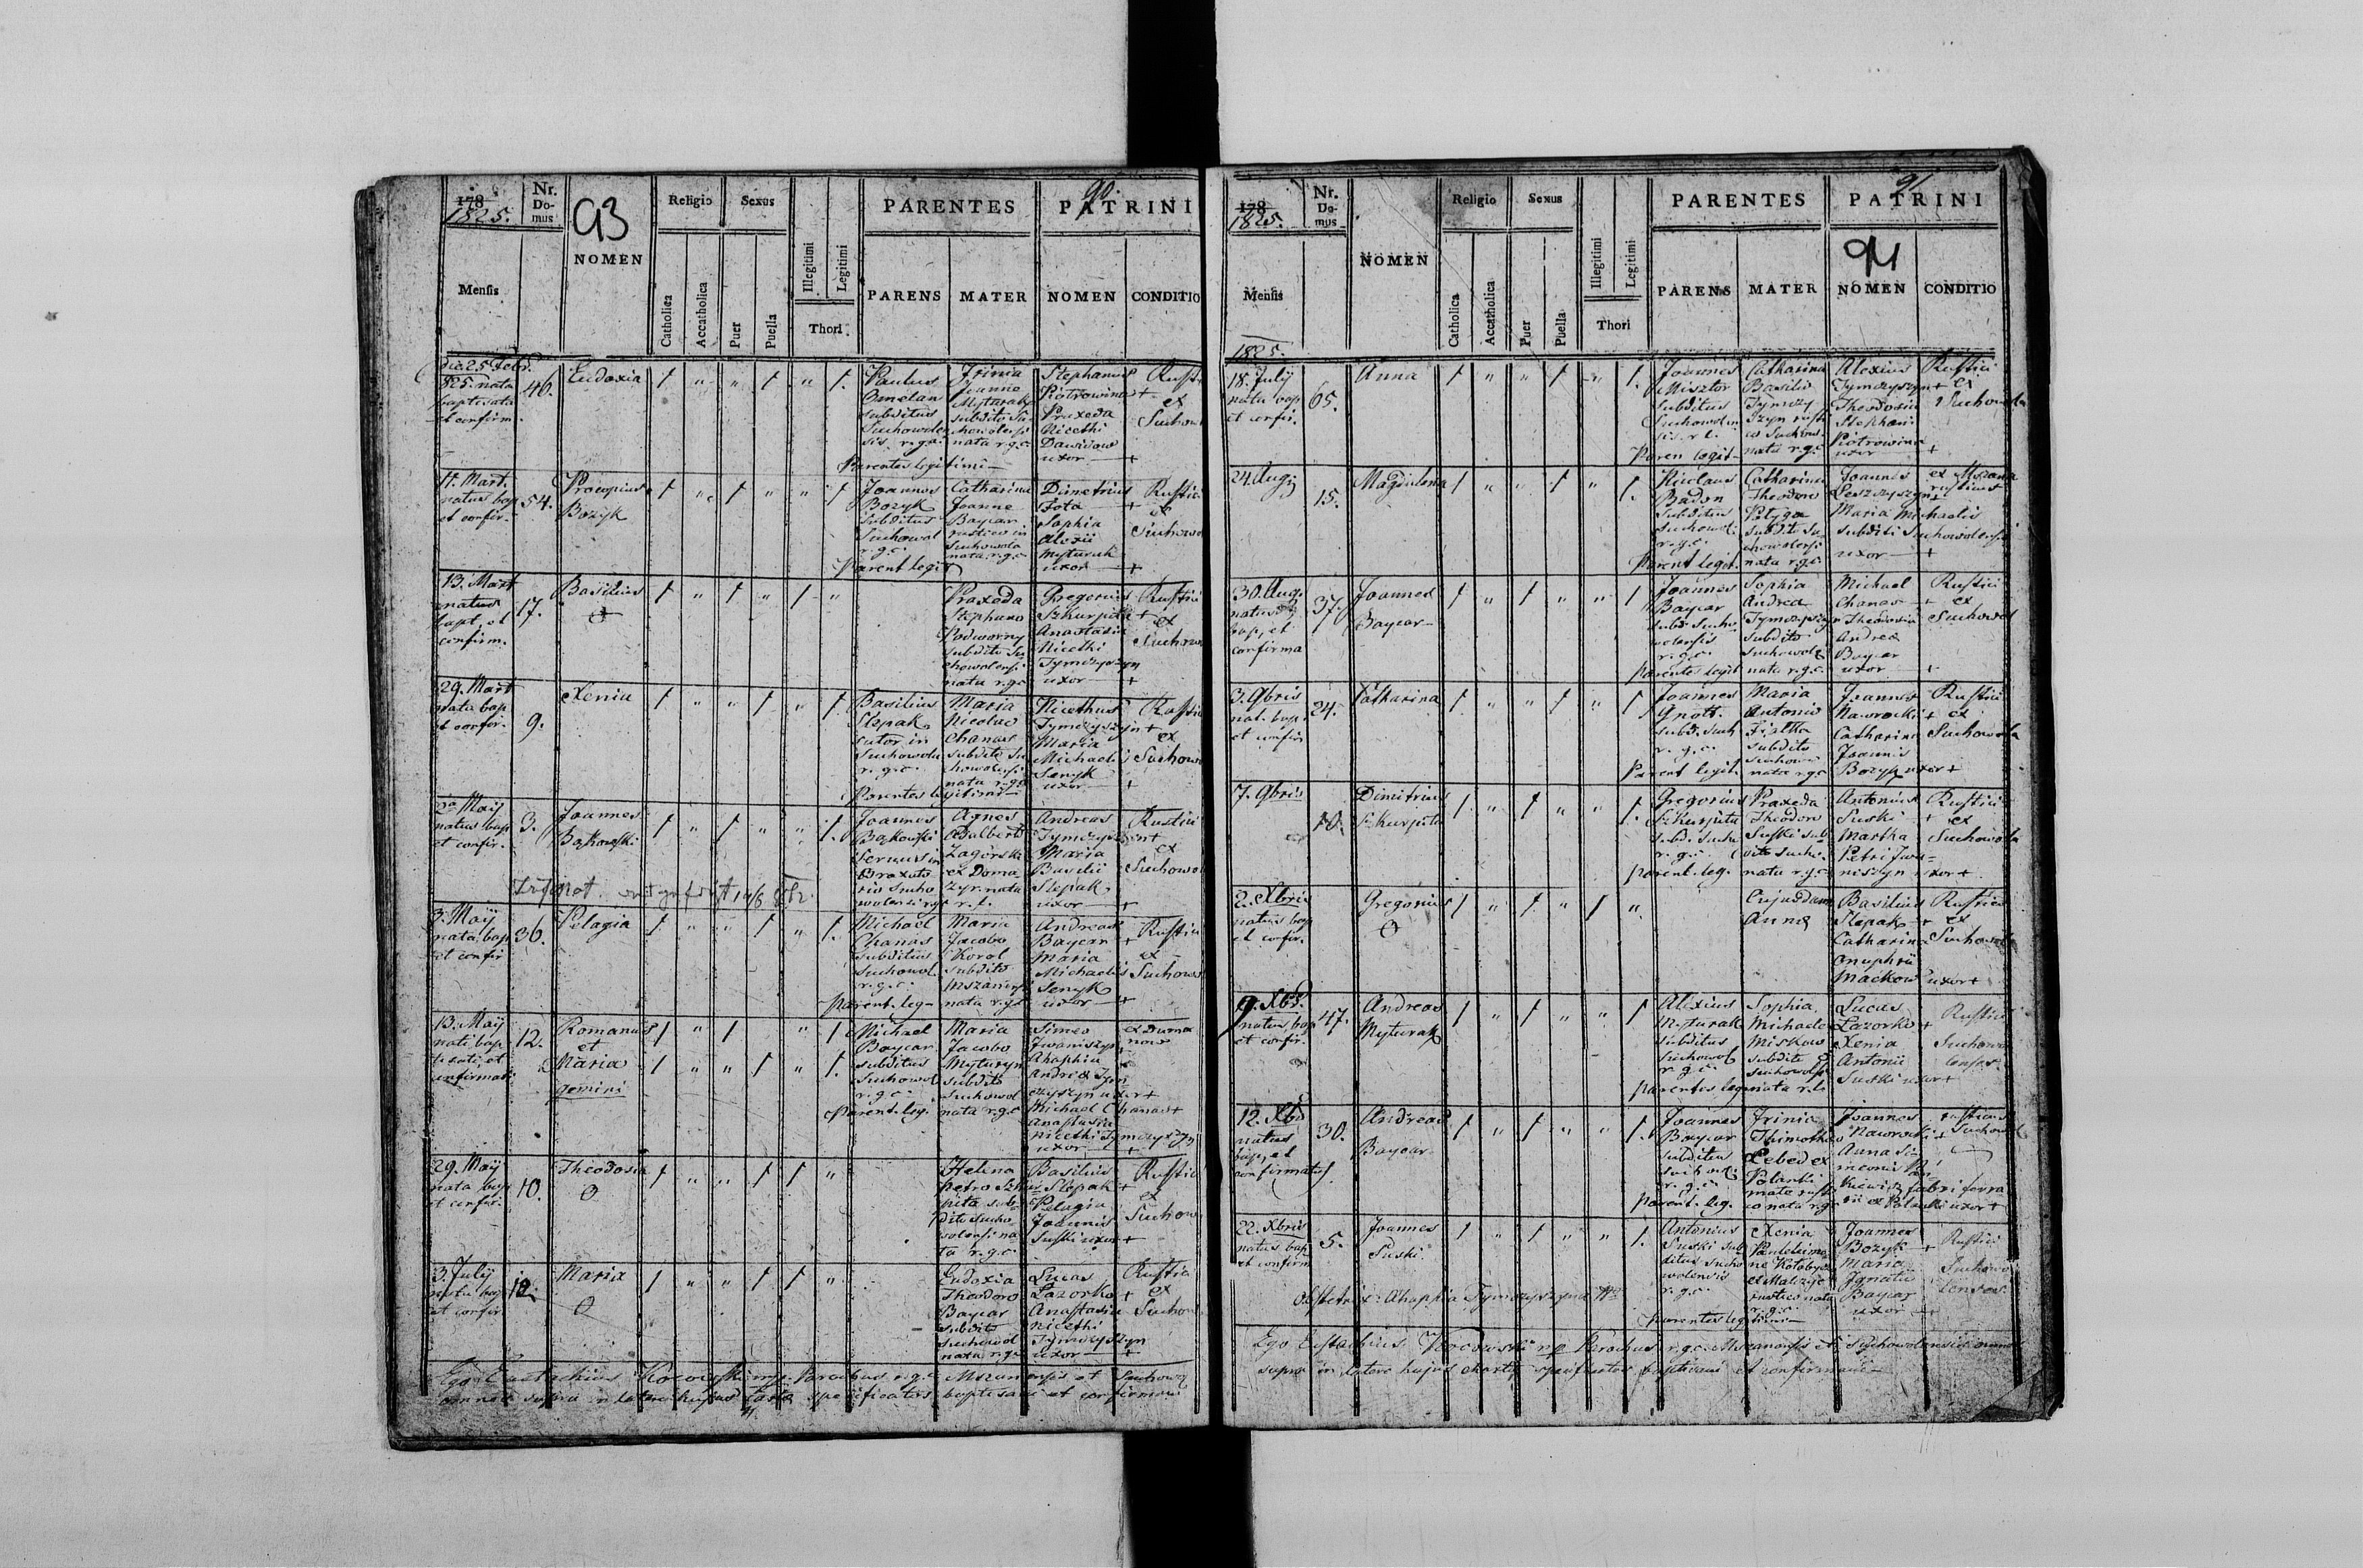 178
1825.
Nr. Domus
93
NOMEN
Religio
Sexus
Illegitimi
Legitimi
PARENTES
90.
PATRINI
Mensis
Catholica
Accatholica
Puer
Puella
Thori
PARENS
MATER
NOMEN
CONDITIO
Die 25 Febr.
825. nata
baptisata
et confirm.
46.
Eudoxia
Paulus
Omelan
subditus
Suchowolen
sis r.g.c.
Parentes legitimi
Irinia
Joanne
Myturak
subdito Su
chowolensi
nata r.g.c.
Stephanus
Piotrowina +
Praxeda
Nicethi
Dawidow
uxor +
Rusti
ex
Suchow
11. Mart.
natus bap
et confir.
54.
Procopius
Bozyk
Joannes
Bozyk
subditus
Suchowol
r.g.c.
Parent legit
Catharina
Joanne
Baycar
rustico in
Suchowola
nata r.g.c.
Dimetrius
Fota +
Sophia
Alexii
Myturak
uxor +
Rustici
ex
Suchowo
13. Mart
natus
bapt. et
confirm.
17.
Basilius
Praxeda
Stephano
Podworny
subdito Su
chowolensi
nata r.g.c
Gregorius
Szkurpita +
Anastasia
Nicethi
Tymczyszyn
uxor +
Rustici
ex
Suchow
29. Mart
nata bap
et confir.
9.
Xenia
Basilius
Slepak
sutor in
Suchowola
r.g.c.
Parentes legitimi
Maria
Nicolao
Chanas
subdito Su
chowolensi
nata r.g.c
Nicethus
Tymczyszyn +
Maria
Michaelis
Senyk
uxor +
Rustici
ex
Suchow
2a Maij
natus bap
et confir.
3.
Joannes
Bąkowski
Joannes
Bąkowski
servus in
Agnes
Adalberto
Zagórski
ex Doma
zyr. nata
r.l.
Andreas
Tymczyszyn +
Maria
Basilii
Slepak
uxor +
Rustici
ex
Suchowo
3. Maij
nata bap
et confir
36.
Pelagia
Michael
Chanas
subditus
Suchowol.
r.g.c.
Parent. leg.
Maria
Jacobo
Korol
subdito
Mszanensi
nata r.g.c
Andreas
Baycar +
Maria
Michaelis
Senyk
uxor +
Rustici
ex
Suchow
13. Maij
nati bap
tisati et
confirmati
12.
Romanus
et
Maria
gemini
Michael
Baycar
subditus
Suchowol
r.g.c.
Parent. leg.
Maria
Jacobo
Myturyn
subdito
Suchowol
nata r.g.c
Simeo
Iwaniszyn
Ahaphia
Andreæ Tym
czyszyn uxor +
Michael Chanas +
Anastasia
Nicethi Tymczyszyn
uxor +
29. Maij
nata bap
et confir.
10.
Theodosia
Helena
Petro Szkur
pita sub
dito Sucho
wolensi na
ta r.g.c.
Basilius
Slepak +
Pelagia
Joannis
Suski uxor +
Rustici
ex
Suchow
3. July
nata bap
et confir.
12.
Maria
Eudoxia
Theodoro
Baycar
subdito
Suchowol
nata r.g.c
Lucas
Lazorko +
Anastasia
Nicethi
Tymczyszyn
uxor +
Rustici
ex
Suchow
Ego Eustachius Kocowski mp. Parochus r.g.c. Mszanensis et Suchowo
omnes supra in latere hujus specificatos baptisavi et confirmavi
178
1825.
Nr. Domus
NOMEN
Religio
Sexus
Illegitimi
Legitimi
PARENTES
91
PATRINI
94
Mensis
Catholica
Accatholica
Puer
Puella
Thori
PARENS
MATER
NOMEN
CONDITIO
1825.
18. July
nata bap
et confir.
65.
Anna
Joannes
Misztor
subditus
Parent legit
Catharina
Basilio
Tymczy
szyn rusti
nata r.g.c
Alexius
Tymczyszyn +
Theodosia
Stephani
Piotrowina
uxor +
Rustici
ex
Suchowola
24. Augi
15.
Magdalena
Nicolaus
Badon
subditus
Suchowol
r.g.c.
Parent legit.
Catharina
Theodoro
Petyga
subdito Su
chowolensi
nata r.g.c.
Joannes
Leszczyszyn +
Maria Michaelis
subditi Suchowolensi
uxor +
ex Mszana
rusticus
30. Aug.
natus
bap. et
confirma
37.
Joannes
Baycar
Joannes
Baycar
subd. Sucho
wolensis
r.g.c.
Parentes legit
Sophia
Andrea
Tymczyszyn
subdito
Suchowol
nata r.g.c.
Michael
Chanas +
Theodosia
Andreæ
Baycar
uxor +
Rustici
ex
Suchowol
3. 9bris
nat. bap.
et confir
24.
Catharina
Joannes
Gnott.
subd. Such
r.g.c.
Parent legit.
Maria
Antonio
Fiałka
subdito
Suchowo
nata r.g.c
Joannes
Nawrocki +
Catharina
Joannis
Bozyk uxor +
Rustici
ex
Suchowola
7. 9bris
10.
Dimitrius
Szkurpita
Gregorius
Szkurpita
subd. Sucho
r.g.c.
Parent. leg.
Praxeda
Theodoro
Suski sub
dito Sucho.
nata r.g.c
Antonius
Suski +
Martha
Petri Iwa
niszyn uxor +
Rustici
ex
Suchowola
2. Xbris
natus bap
et confir.
Gregorius
Cujusdam
Anna
Basilius
Slepak +
Catharina
Onuphrii
Mackow uxor +
Rustici
ex
Suchowol
9. Xbr.
natus bap
et confir.
47.
Andreas
Myturak
Alexius
Myturak
subditus
Suchowol
r.g.c.
Parentes leg
Sophia
Michaele
Miskow
subdito
Suchowols
nata r.l.
Lucas
Lazorko +
Xenia
Antonii
Suski uxor +
Rustici
Suchowo
lenses
12. Xbr
natus
bap. et
confirmatus
30.
Andreas
Baycar
Joannes
Baycar
subditus
r.g.c.
Parent. leg.
Irinia
Thimotheo
Lebed ex
Polanki
nata r.g.c
Joannes
Nawrocki +
Anna Si
meonis
fabri ferra
rii ex Polanki uxor +
rusticus
Suchowol
22. Xbris
natus bap
et confirm
5.
Joannes
Suski
Antonius
Suski sub
ditus Sucho
wolensis
r.g.c.
Parentes legitimi
Xenia
Panteleimo
ne
rustico nata
r.g.c.
Joannes
Bozyk +
Maria
Ignatii
Baycar
uxor +
Rustici
Suchowo
lenses
Obstetrix: Ahaphia Tymczyszyn
Ego Eustachius Kocowski mp Parochus r.g.c. Mszanensis et Suchowolensis omnes
supra in latere hujus chartæ specificatos baptisavi et confirmavi